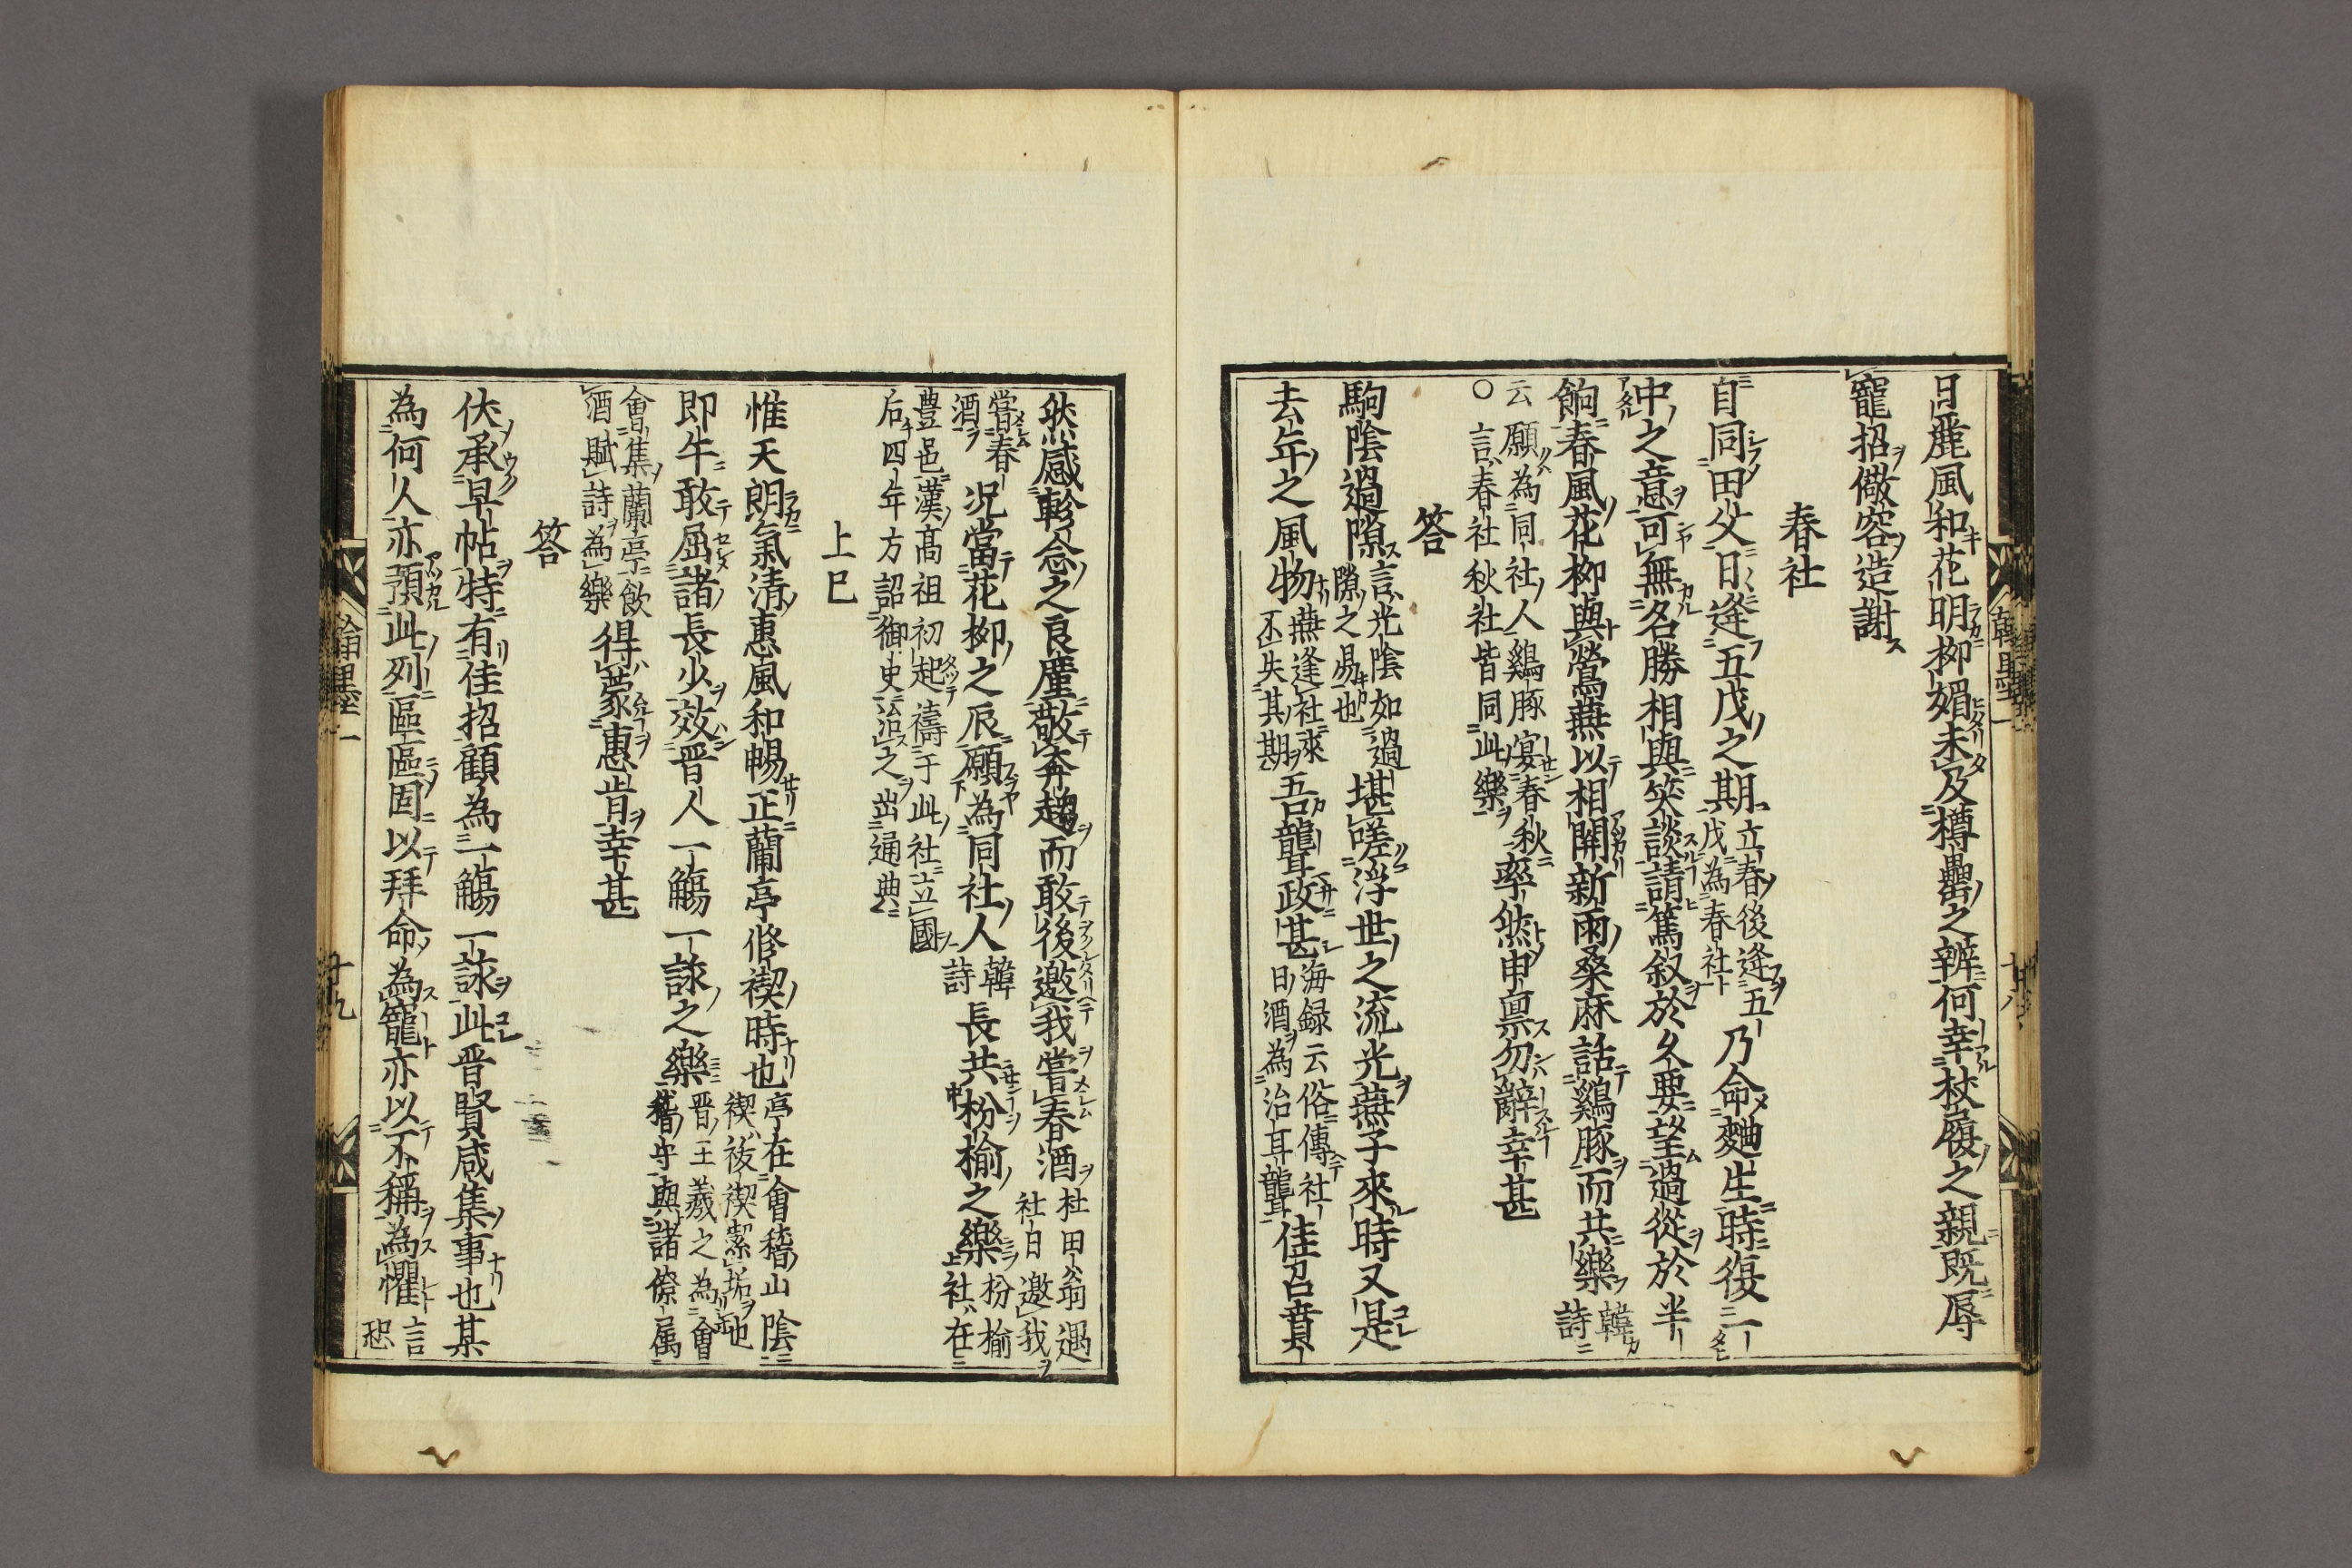 日麗風和花明柳媚未及樽罍之辦何幸杖履之親既辱
寵招儆容造謝
春社
自同田父日逢五戊之期立春後逢五戊為春社乃命麯生時復一
中之意可無名勝相與笑談請篤叙於久要望過從於半
餉春風花柳與鶯燕以相關新雨桑麻話鷄豚而共樂韓詩
云願為同社人鷄豚宴春秋率然申禀勿辭幸甚
○言春社秋社皆同此樂
答
駒陰過隙言光陰如過隙之易也堪嗟浮世之流光燕子來時又是
去年之風物燕逢社來不失其期吾聾政甚海録云俗傳社日酒為治耳聾佳召賁
然感軫念之良塵敬奔趨而敢後邀我嘗春酒杜田翁遇社日邀我
嘗春酒况當花柳之辰願為同社人韓詩長共枌榆之樂枌榆社在
豊邑漢高祖初起禱于此社立國
后四年方詔御史治之出通典
上巳
惟天朗氣清惠風和暢正蘭亭修禊時也亭在會稽山陰禊祓禊潔垢也
即牛敢屈諸長少效晋人一觴一詠之樂晋王羲之為會稽守與諸僚属
會集蘭亭飲酒賦詩為樂得蒙惠肯幸甚
答
伏承早帖特有佳招顧為一觴一詠此晋賢咸集事也某
為何人亦預此列區區固以拜命為寵亦以不稱為懼言恐
翰墨一
十八
翰墨一
十九